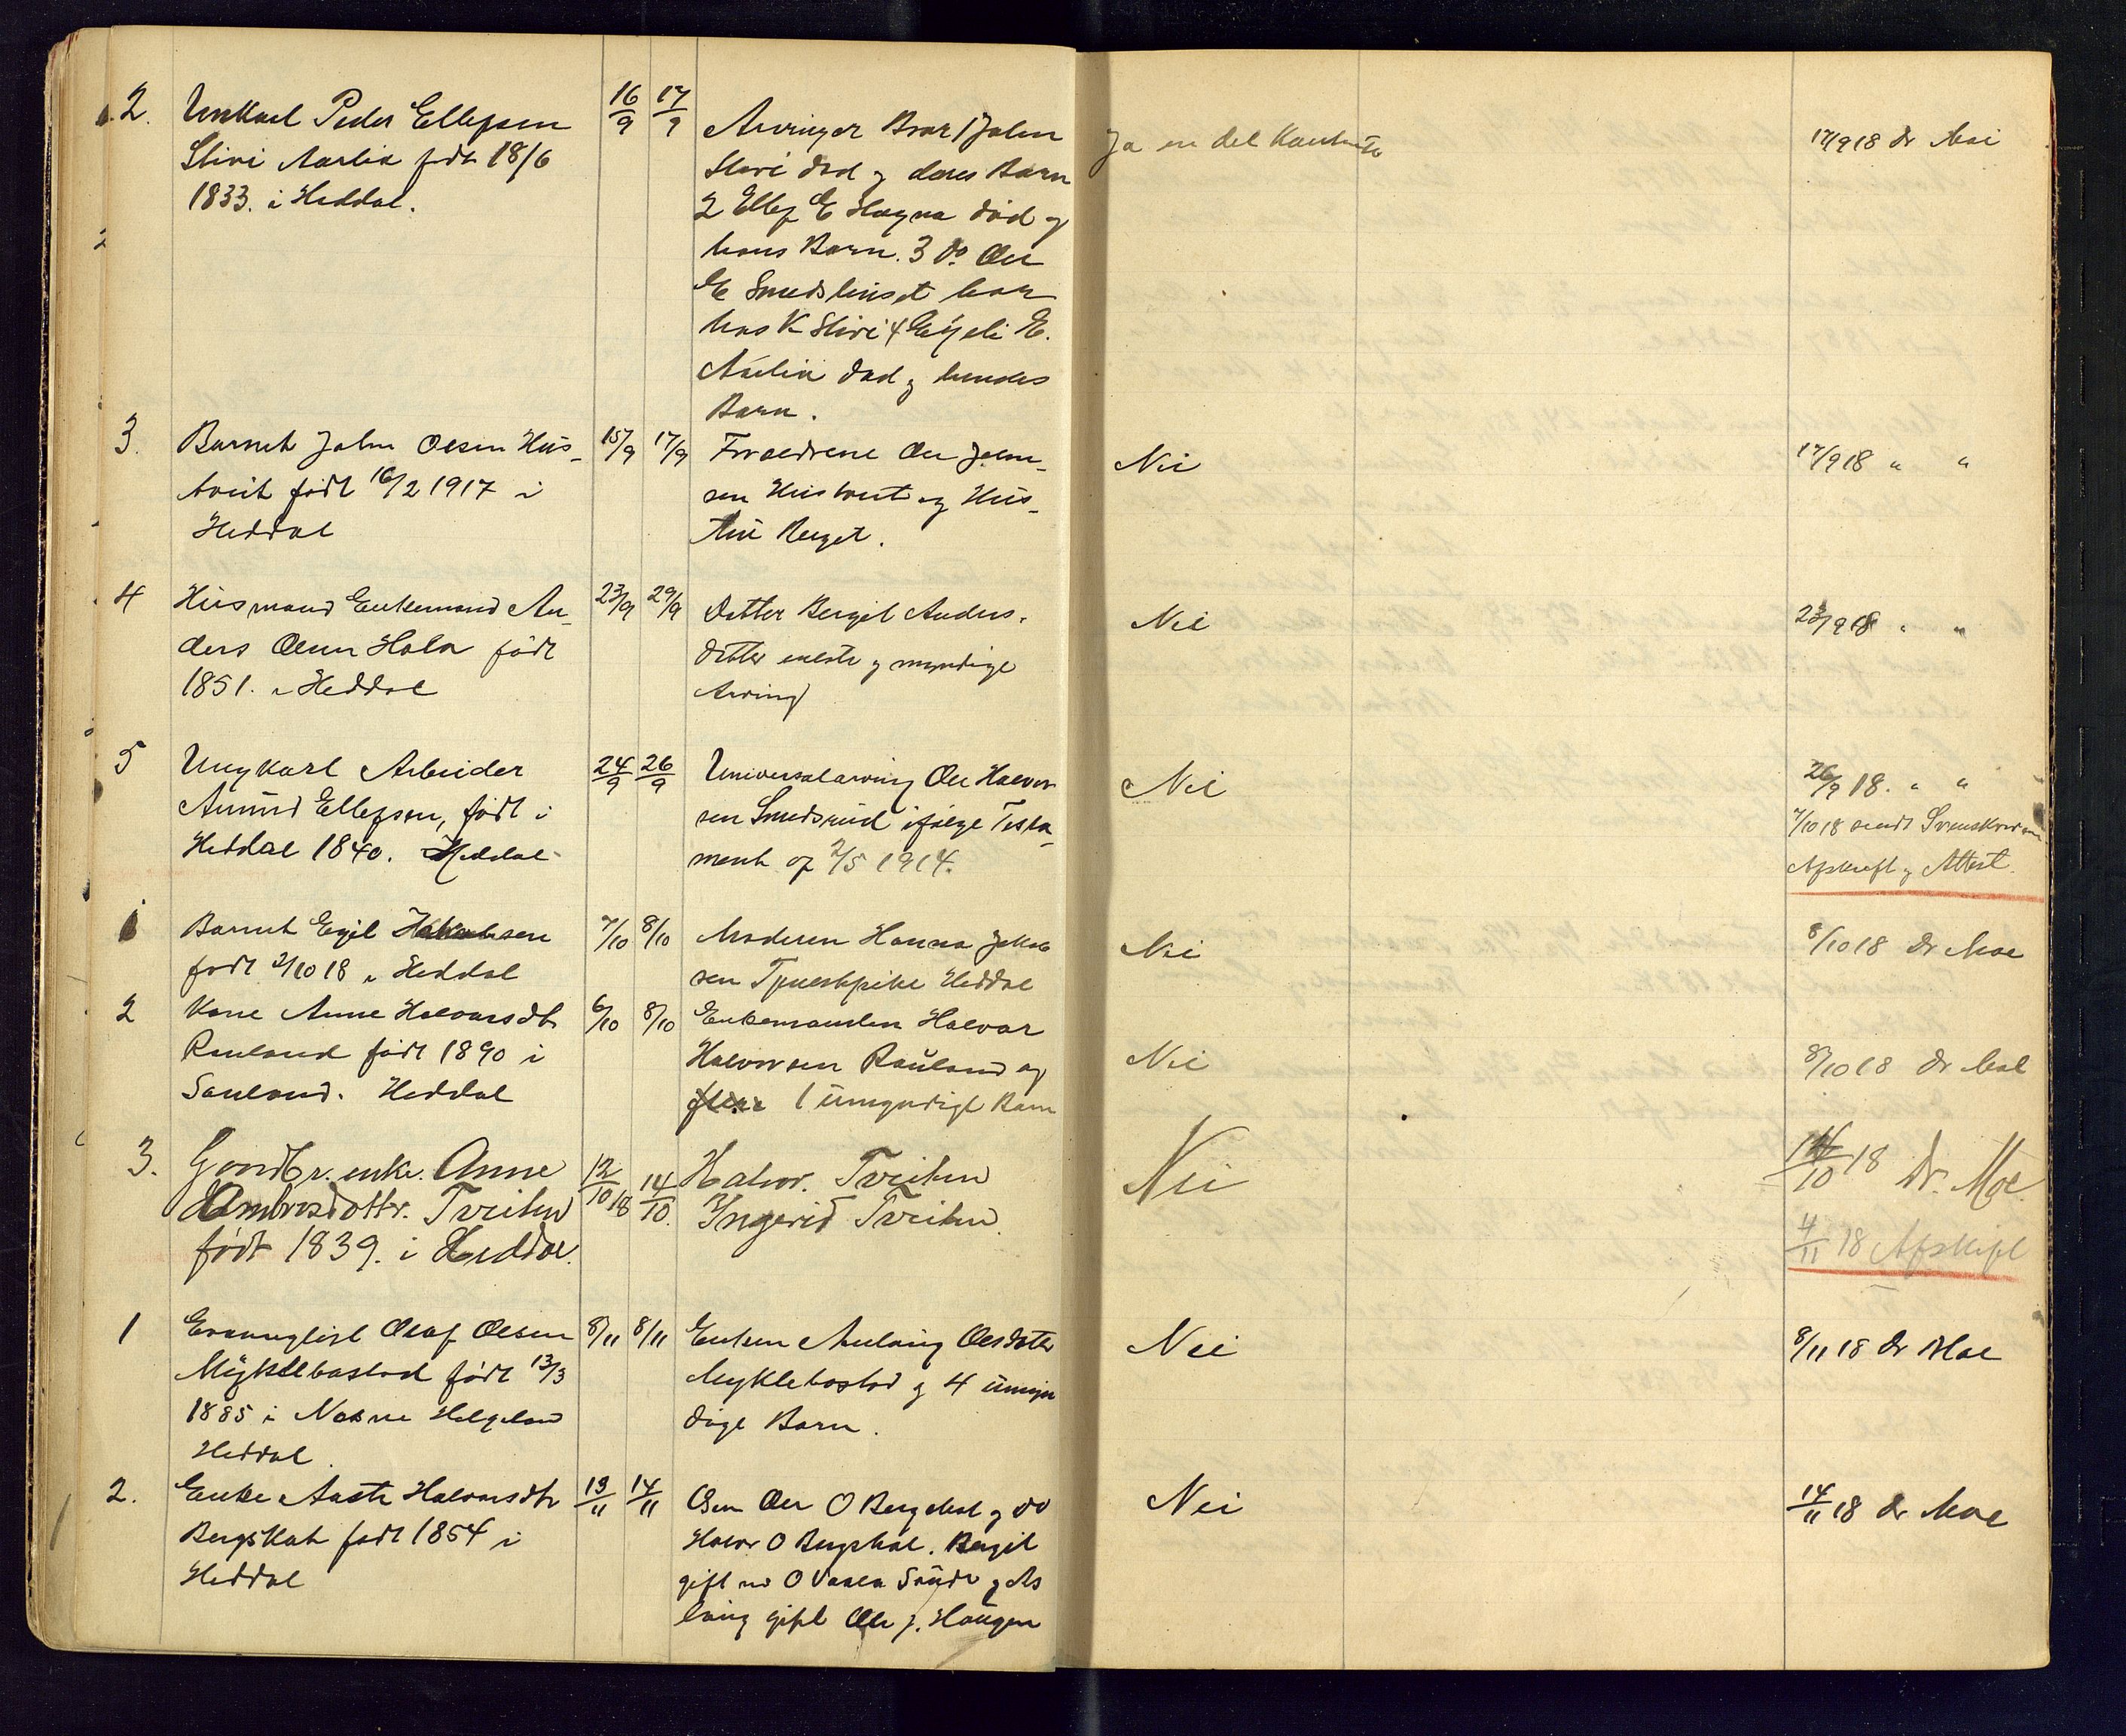 2. Unkarl Peder Ellefsen 16/9 17/9
Slivi Aarlia født 18/6
1833. i Heddal.
Arvinger Bror 1 John
Slivi død og deres Barn
2 Ellef E Hagna død og
hans Barn. 3 do Ole
E Smedshuset bor
hos K Slivi 4 E. E.
Aarlia død og hendes
Barn.
Ja en del
17/9 18 Dr Moe
3. Barnet John Olsen Hus-
tveit født 16/2 1917 i
Heddal
15/9 17/9
Forældrene Ole John-
sen Hustveit og Hus-
tru Berget.
Nei
17/9 18 " "
4 Husmand Enkemand An-
ders Olsen Hola født
1851. i Heddal
23/9 29/9
Datter Bergit Anders-
datter eneste og myndige
Arving
Nei
23/9 18 " "
5 Ungkarl Arbeider
Amund Ellefsen, født i
Heddal 1840. Heddal
24/9 26/9
Universalarving Ole Halvor
sen Smedsrud ifølge Testa-
ment af 2/5 1914.
Nei
26/9 18. " "
7/10 18 sendt
Afskrift og Attest.
1 Barnet Egil
født 2/10 18 i Heddal
7/10 8/10
Moderen Hanna Jakob
sen Tjenestpike Heddal
Nei
8/10 18 Dr Moe
2 Kone Anne Halvorsdt
Rauland født 1890 i
Sauland. Heddal
6/10 8/10
Enkemanden Halvor
Halvorsen Rauland og
1 umyndigt Barn
Nei
8/10 18 Dr Moe
3. Gaardbr. enke. Anne
Ambrosdottr. Tveiten
født 1839. i Heddal.
12/10 18 14/10.
Halvor. Tveiten
Ingerid Tveiten
Nei
14/10 18 Dr. Moe.
4/11 18 Afskrift
1 Evangelist Olaf Olsen
Myklebostad født 13/3
1885 i Nesne Helgeland
Heddal.
8/11 8/11
Enken Aslaug Olsdatter
Myklebostad og 4 umyn
dige Barn.
Nei
8/11 18 Dr Moe
2. Enke Aaste Halvorsdtr
Bergskat født 1854 i
Heddal
13/11 14/11
Søn Ole O Bergskat og do
Halvor O Bergskat. Bergit
gift m O Vaala Saude og As
laug gift Ole J. Haugen
Nei
14/11 18 Dr Moe